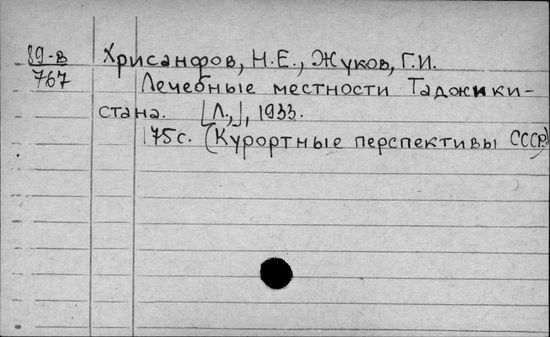 89-в Хрисанфов, Н.Е., Жуков, Г.И.
767 Лечебные местности Таджики-
стана. [Л.,], 1933.
175с. (Курортные перспективы СССР)